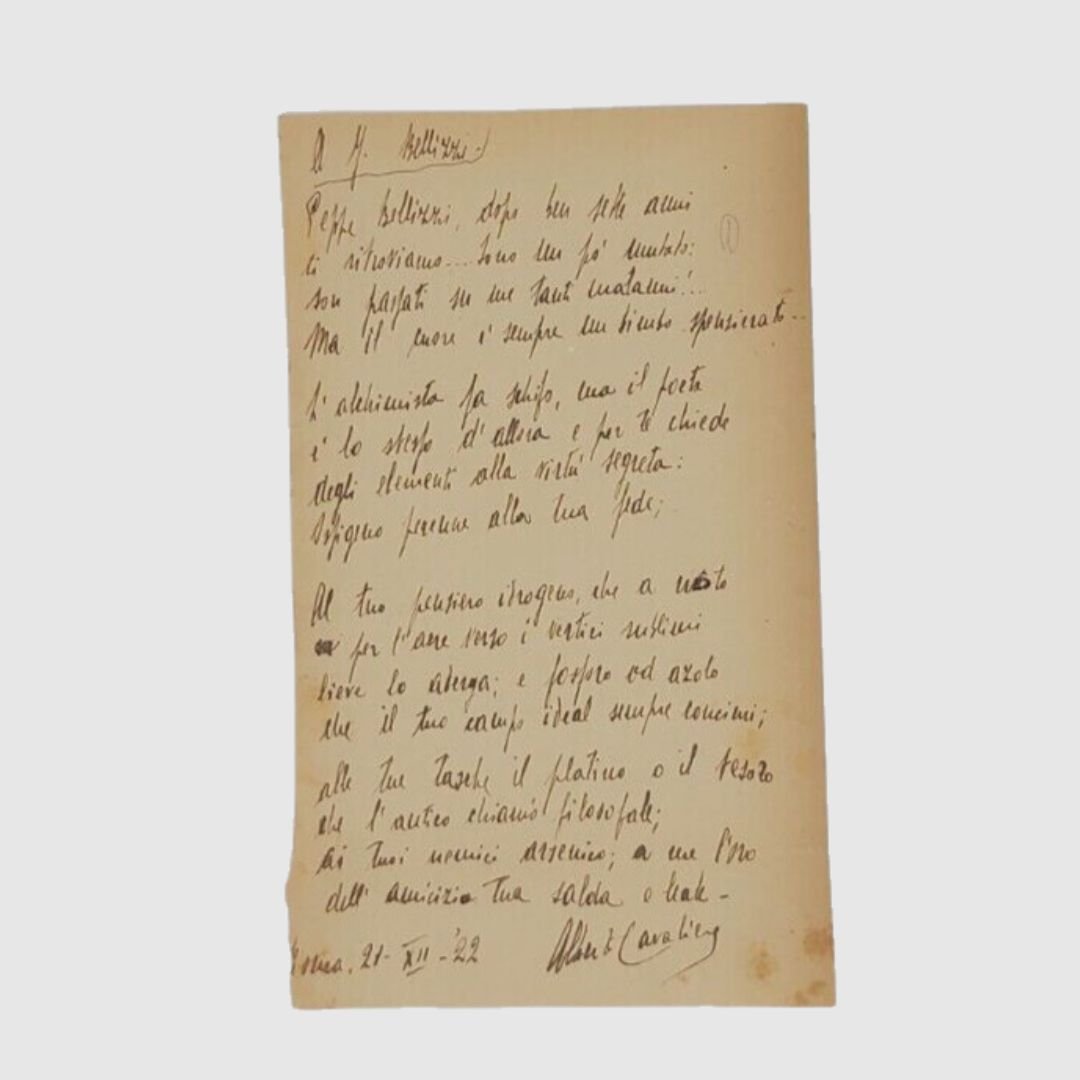 A G. Bellizzi -
Peppe Bellizzi, dopo ben sette anni
ci ritroviamo... Sono un po' mutato:
son passati su me tanti malanni!...
Ma il cuore è sempre un bimbo spensierato...
L'alchimista fa schifo, ma il poeta
è lo stesso d'allora e per te chiede
degli elementi alla virtù segreta:
Ossigeno perenne alla tua fede;
Al tuo pensiero idrogeno, che a volo
per l'aere verso i vertici sublimi
lieve lo aderga; e fosforo ed azoto
che il tuo campo ideal sempre concimi;
alle tue tasche il platino o il tesoro
che l'antico chiamò filosofale;
ai tuoi nemici arsenico; a me l'oro
dell'amicizia tua salda e leale -
Roma, 21 - XII - '22 Alberto Cavaliere